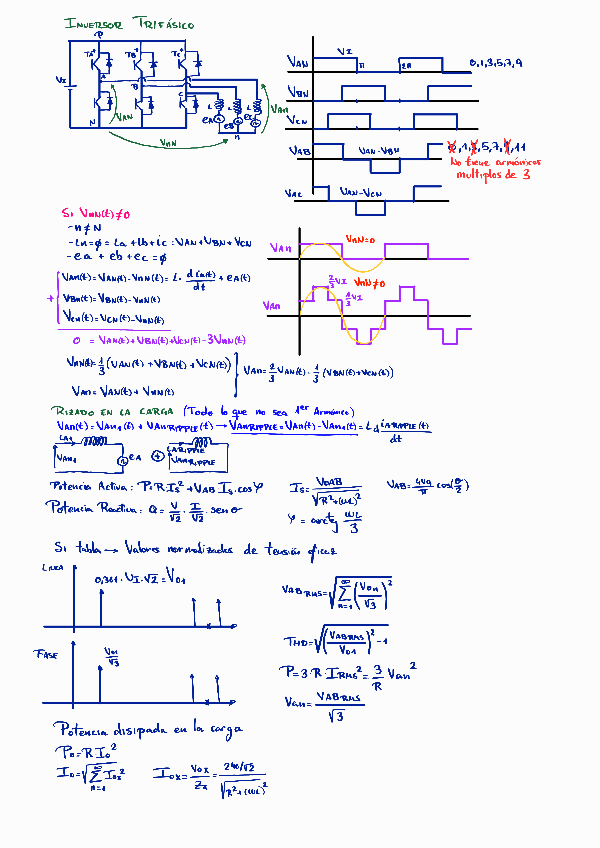 INVERSOR TRIFÁSICO
P
TA+ TB+ TC+
VI
A
B
C
N
VAN
VnN
L L L
eA eB eC
n
VAn
VAN VI π 2π 0,1,3,5,7,9
VBN
VCN
VAB VAN-VBN 0,1,3,5,7,9,11
No tiene armónicos
multiplos de 3
VAC VAN-VCN
Si VnN(t)≠0
-n≠N
-in=ϕ = ia+ib+ic : VAN+VBN+VCN
-ea + eb + ec = ϕ
VAn VnN=0
VAn 2/3 VI 1/3 VI VnN≠0
+ { VAn(t)=VAN(t)-VnN(t)= L· d ia(t)/dt + eA(t)
VBn(t)=VBN(t)-VnN(t)
VCn(t)=VCN(t)-VnN(t)
0 = VAN(t)+VBN(t)+VCN(t)-3VnN(t)
VnN(t)=1/3 (VAN(t)+VBN(t)+VCN(t))
VAn=2/3 VAN(t)·1/3 (VBN(t)+VCN(t))
VAn=VAN(t)+VnN(t)
RIZADO EN LA CARGA (Todo lo que no sea 1er Armónico)
VAn(t)=VAn1(t)+VAnRIPPLE(t)→VAnRIPPLE=VAn(t)-VAn1(t)=L d iARIPPLE(t)/dt
iA1
VAn1
eA
+
iARIPPLE
VAnRIPPLE
Potencia Activa: P=R·IS²+VAB IS·cosφ IS=VOAB/√R²+(ωL)² VAB=4Vd/π cos(θ/2)
Potencia Reactiva: Q=V/√2·I/√2·senθ φ=arctg ωL/3
Si tabla → Valores normalizados de tensión eficaz
LINEA
0,361·VI·√2=VO1
VABRMS=√∑ n=1 ∞ (VOn/√3)²
FASE
VO1/√3
THD=√(VABRMS/VO1)²-1
P=3·R·IRMS²=3/R VAn²
VAn=VABRMS/√3
Potencia disipada en la carga
PO=R IO²
IO=√∑ n=1 ∞ IOx² IOX=VOX/ZX=240/√2/√R²+(ωL)²